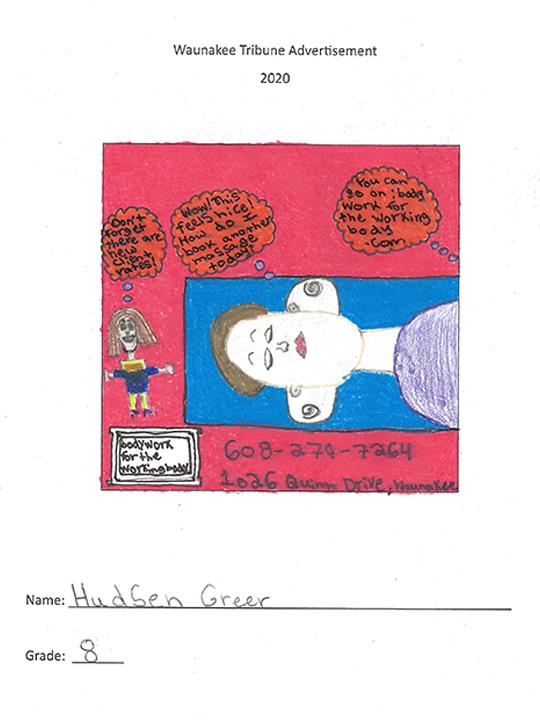 Waunakee Tribune Advertisement
2020
Don't
forget
there are
new
client
rates!
Wow! This
feels nice!
How do I
book another
massage
today?
You can
go on : body
work for
the working
body
.com
bodywork
for the
workingbody
608-270-7264
1026 Quinn Drive, Waunakee
Name: Hudsen Greer
Grade: 8